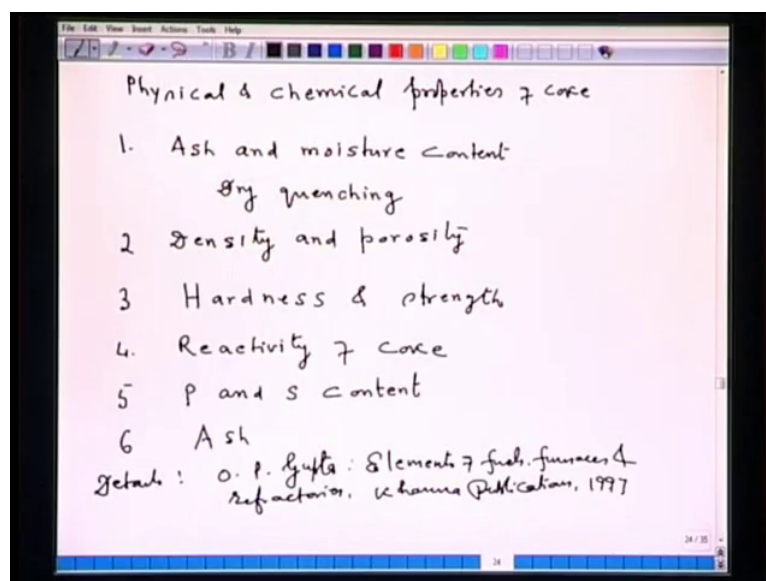 File Edit View Insert Actions Tools Help
Physical & chemical properties of coke
1. Ash and moisture content
Dry quenching
2 Density and porosity
3 Hardness & strength
4. Reactivity of coke
5 P and S content
6 Ash
Details : O. P. Gupta : Elements of fuels, furnaces &
refractories, Khanna Publication, 1997
24 / 35
24